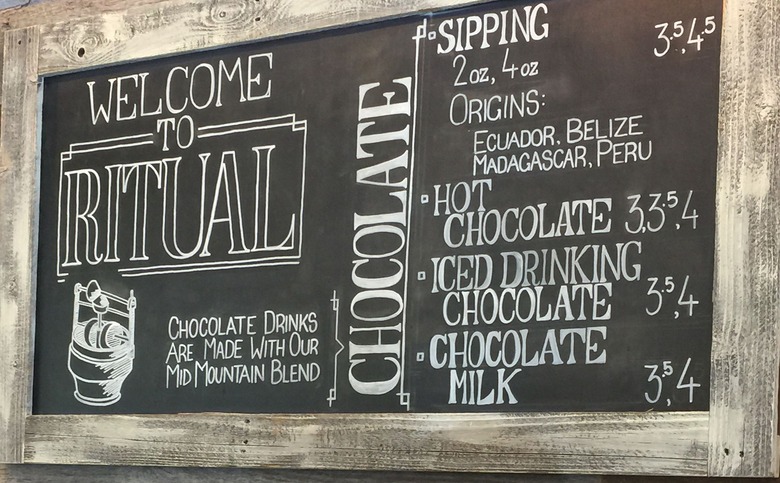 WELCOME
TO
RITUAL
CHOCOLATE DRINKS
ARE MADE WITH OUR
MID MOUNTAIN BLEND
CHOCOLATE
SIPPING 3.5, 4.5
2oz, 4oz
ORIGINS:
ECUADOR, BELIZE
MADAGASCAR, PERU
HOT
CHOCOLATE 3, 3.5, 4
ICED DRINKING
CHOCOLATE 3.5, 4
CHOCOLATE
MILK 3.5, 4